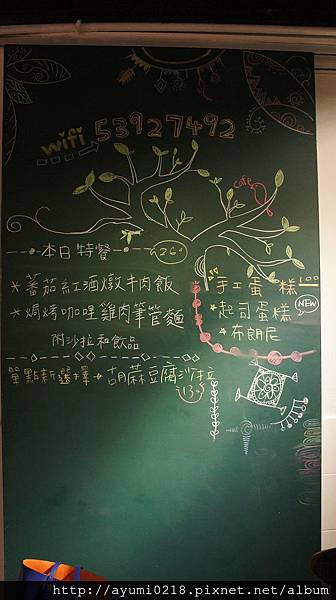 wifi 53927492
Cafe
本日特餐 260
*蕃茄紅酒燉牛肉飯
*焗烤咖哩雞肉筆管麵
附沙拉和飲品
單點新選擇→胡蔴豆腐沙拉
手工蛋糕100
*起司蛋糕 NEW
*布朗尼
http://ayumi0218.pixnet.net/album